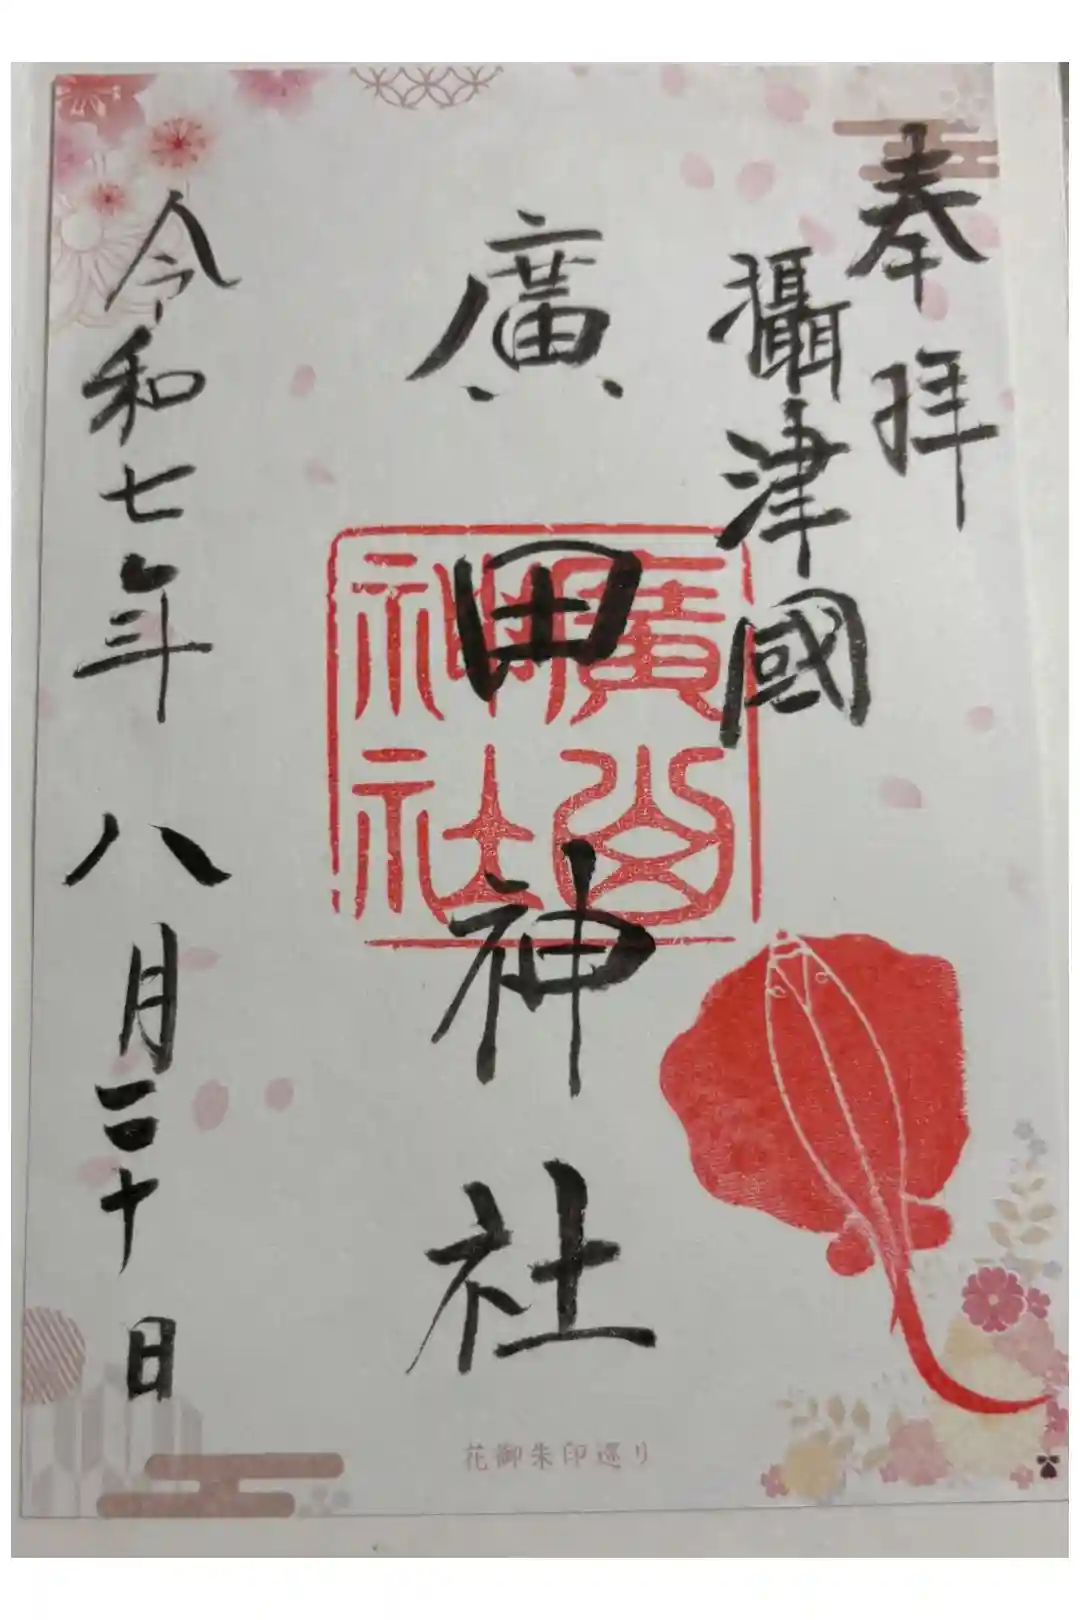 奉拝
攝津國
廣田神社
令和七年八月二十日
花御朱印巡り